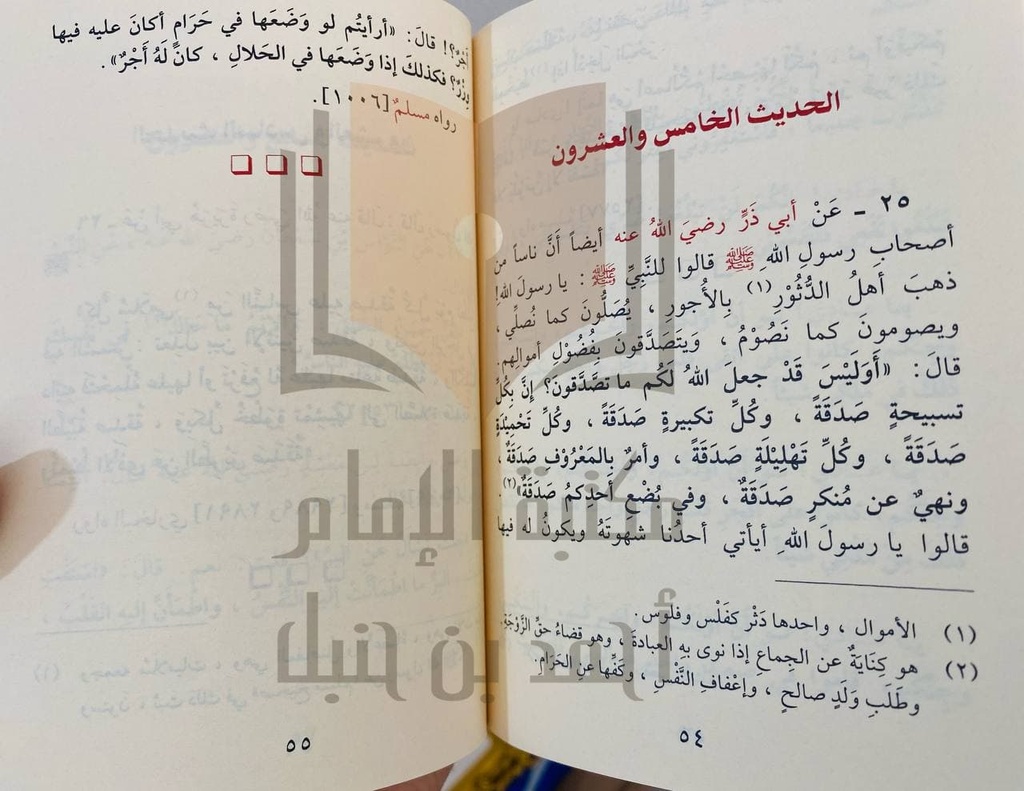 الحديث الخامس والعشرون
٢٥ - عَنْ أبي ذَرٍّ رضيَ اللهُ عنه أيضاً أنَّ ناساً من
أصحابِ رسولِ اللهِ ﷺ قالوا للنَّبِيِّ ﷺ : يا رسولَ اللهِ!
ذهبَ أهلُ الدُّثُوْرِ(١) بِالأُجورِ ، يُصَلُّونَ كما نُصلِّي ،
ويصومونَ كما نَصُوْمُ ، وَيَتَصَدَّقونَ بِفُضُوْلِ أموالِهم.
قالَ: «أَوَلَيْسَ قَدْ جعلَ اللهُ لَكُم ما تصَّدَّقونَ؟ إنَّ بِكُلِّ
تسبيحةٍ صَدَقَةً ، وكُلِّ تكبيرةٍ صَدَقَةً ، وكُلِّ تَحْمِيْدَةٍ
صَدَقَةً ، وكُلِّ تَهْلِيْلَةٍ صَدَقَةً ، وأمرٌ بِالمَعْرُوْفِ صَدَقَةٌ ،
ونهيٌ عن مُنكرٍ صَدَقَةٌ ، وفي بُضْعِ أحدِكمُ صَدَقَةٌ»(٢).
قالوا يا رسولَ اللهِ أيأتي أحدُنا شهوتَهُ ويكونُ له فيها
(١) الأموال ، واحدها دَثْر كفَلْس وفلوس.
(٢) هو كِنَايَةٌ عن الجِماعِ إذا نوى به العبادةَ ، وهو قضاءُ حقِّ الزَّوْجَةِ،
وطَلَبِ وَلَدٍ صالحٍ ، وإعْفافِ النَّفْسِ ، وكَفِّها عنِ الحَرَامِ.
٥٤
أَجْرٌ؟! قالَ: «أرأيتُم لو وَضَعَها في حَرَامٍ أكانَ عليه فيها
وِزْرٌ؟ فكذلكَ إذا وَضَعَها في الحَلالِ ، كانَ لَهُ أَجْرٌ».
رواه مسلمٌ [١٠٠٦].
٥٥
مكتبة الإمام
أحمد بن حنبل